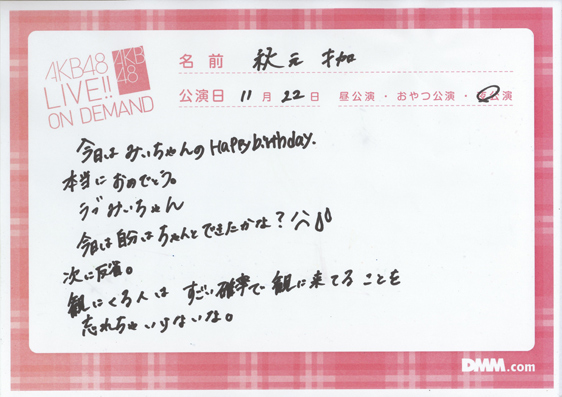 AKB48
LIVE!!
ON DEMAND
AKB
48
名前 秋元 才加
公演日 11月22日 昼公演・おやつ公演・夜公演
今日は みぃちゃんの Happy birthday.
本当に おめでとう。
ラブ みぃちゃん
今日は 自分は ちゃんと できたかな?
次に反省。
観にくる人は すごい確率で 観に来てる ことを
忘れちゃ いけないな。
DMM.com